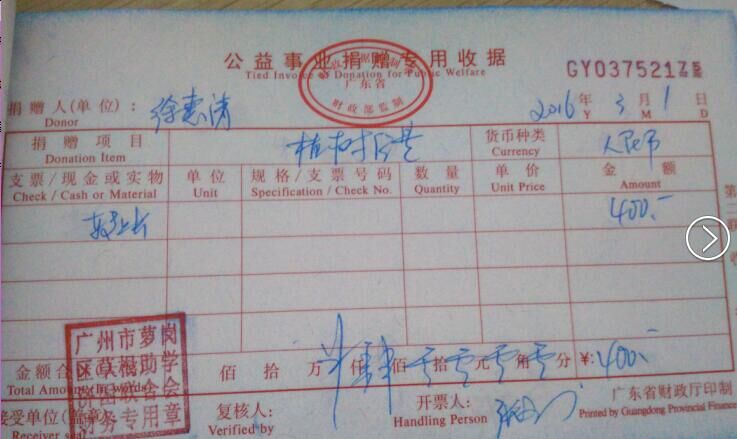 公益事业捐赠专用收据
Tied Invoice of Donation for Public Welfare
广东省
财政部监制
GY03752175
捐赠人(单位): 徐惠涛
Donor
2016 年 3 月 1 日
Y M D
捐赠项目
Donation Item
货币种类 人民币
Currency
支票/现金或实物 单位 规格/支票号码 数量 单价 金额
Check / Cash or Material Unit Specification / Check No. Quantity Unit Price Amount
400.-
广州市萝岗
区草根助学
济困联合会
财务专用章
金额合 佰 拾 万 仟 肆 佰 零 拾 零 元 零 角 零 分 ¥: 400.-
Total Amount in words
接受单位(盖章)
Receiver seal
复核人:
Verified by
开票人:
Handling Person
广东省财政厅印制
Printed by Guangdong Provincial Finance